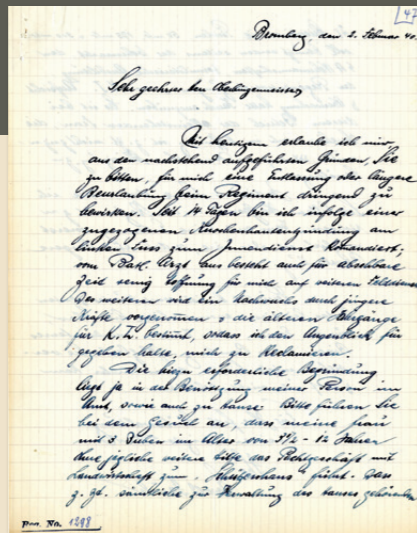 47
Bromberg, den 2. Februar 40.
Sehr geehrter Herr Oberbürgermeister
Mit heutigem erlaube ich mir
aus den nachstehend aufgeführten Gründen, Sie
zu bitten, für mich eine Entlassung oder längere
Beurlaubung beim Regiment dringend zu
bewirken. Seit 14 Tagen bin ich infolge einer
zugezogenen Knochenhautentzündung am
linken Fuss zum Innendienst komandiert;
vom Batl. Arzt aus besteht auch für absehbare
Zeit wenig Hoffnung für mich auf weiteren
Des weiteren wird ein Nachwuchs durch jüngere
Kräfte vorgenommen & die älteren Jahrgänge
für K. Z. bestimmt, sodass ich den Augenblick für
gegeben halte, mich zu reclamieren.
Die hiezu erforderliche Begründung
liegt ja in der Benötigung meiner Person im
Amt, sowie auch zu Hause. Bitte führen Sie
bei dem Gesuch an, dass meine Frau
mit 3 Buben im Alter von 3½ - 12 Jahren
ohne jegliche weitere Hilfe das Pachtgeschäft mit
Landwirtschaft zum "Schützenhaus" führt. Dass
z. Zt. sämtliche zur Verwaltung des Hauses gehörenden
Prov. No. 1298